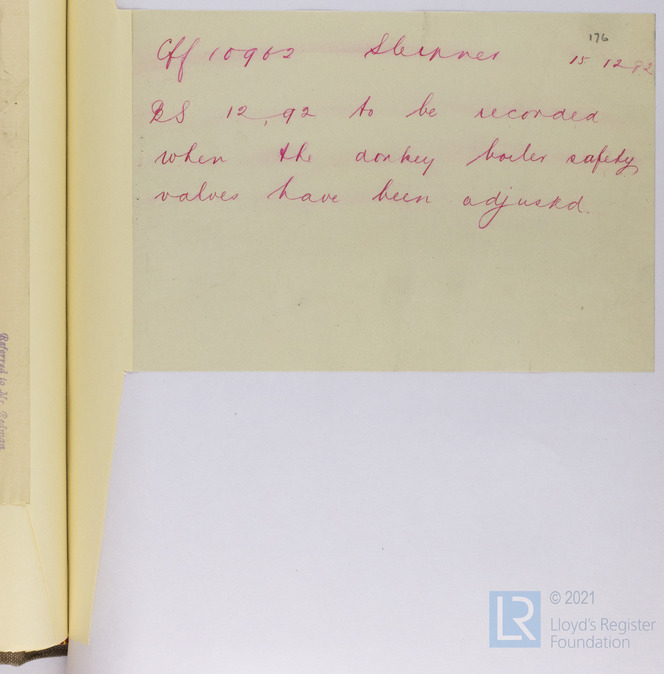 176
Cff 10902 Sleipner 15 12 92
BS 12,92 to be recorded
when the donkey boiler safety
valves have been adjusted.
Referred to Mr. Redman
© 2021
LR
Lloyd's Register
Foundation